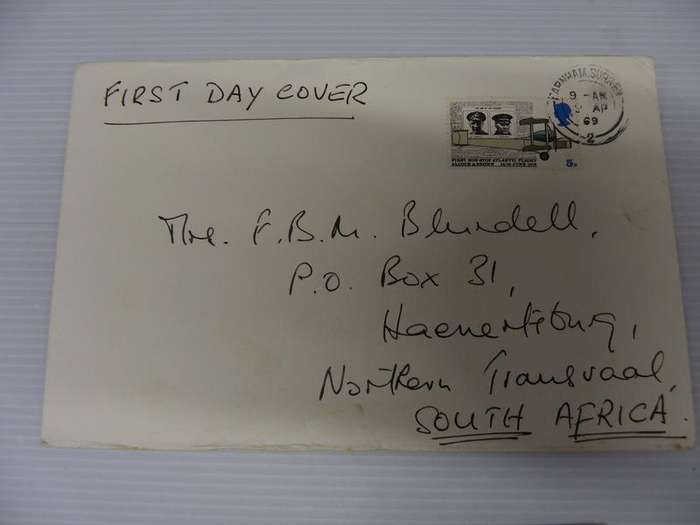 FIRST DAY COVER
FARNHAM, SURREY
9 - AM
AP
69
2
FIRST NON-STOP ATLANTIC FLIGHT
ALCOCK & BROWN 14-15 JUNE 1919
5D
Mrs. F.B.M. Blundell,
P.O. Box 31,
Haenertsburg,
Northern Transvaal,
SOUTH AFRICA.